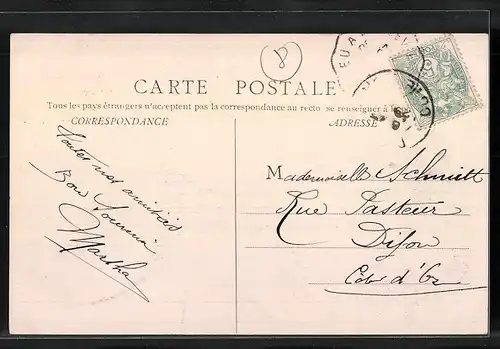 8
CARTE POSTALE
Tous les pays étrangers n'acceptent pas la correspondance au recto se renseigner à
CORRESPONDANCE
ADRESSE
Toutes nos amitiés
Bon Souvenir
Martha
Mademoiselle Schmitt
Rue Pasteur
Dijon
Côte d'Or